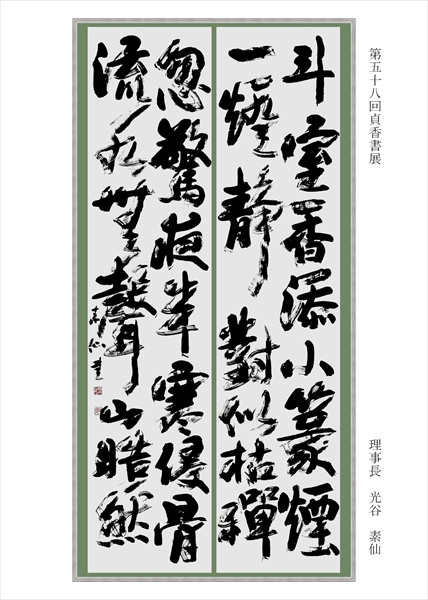 第五十八回貞香書展
理事長 光谷 素仙
斗室香添小篆煙
一燈靜對似枯禪
忽驚夜半寒侵骨
流水無聲山皓然
素仙書